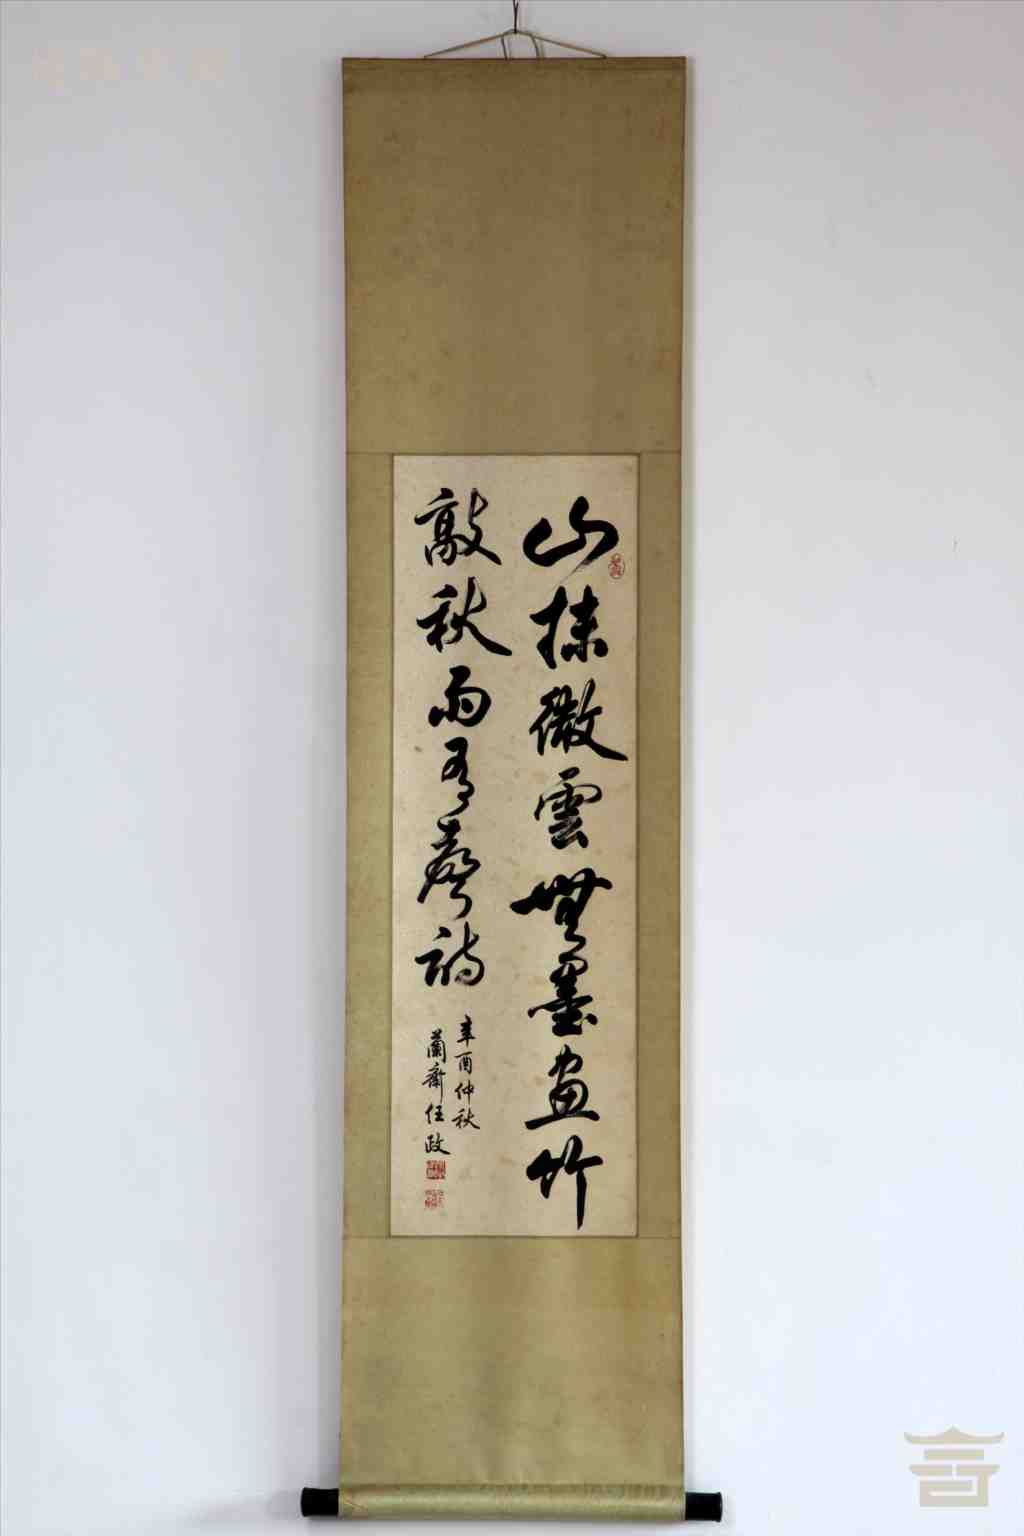 山抹微雲無墨画竹
敲秋雨有聲詩
辛酉仲秋
蘭齋任政